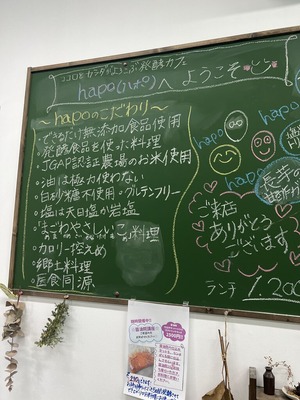 ココロとカラダがよろこぶ発酵カフェ
hapo(ハポ)へ ようこそ
~hapoのこだわり~
・できるだけ無添加食品使用
・発酵食品を使った料理
・JGAP認証農場のお米使用
・油は極力使わない
・白砂糖不使用・グルテンフリー
・塩は天日塩か岩塩
・「まごわやさしい」この料理
・カロリー控えめ
・郷土料理
・医食同源
hapo
hapo
hapo
ご来店
ありがとう
ございます
ランチ 1,200